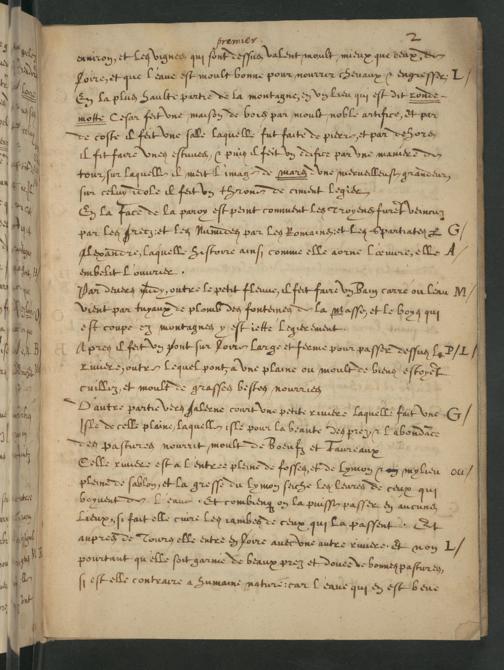 premier. 2
environ, et les vignes qui sont dessus valent moult mieux que deux, de
Loire, et que l'eaue est moult bonne pour nourrir chevaux & engresser, L/
En la plus haulte partie de la montagne, en un lieu qui est dit
motte Cesar fet une maison de bois par moult noble artifice, et par
de coste il feit une salle laquelle fut faite de pierre, et par dehors
il fit faire unes estuves, & puis il feit un edifice par une maniere de
tour, sur laquelle il meit l'image de mars d'une merveilleuse grandeur
sur celuy idole il feit un throne de ciment
En la face de la paroy est peint comment les Troyens furēt vaincuz
par les Grecz, et les Numides par les Romains, et les Spartiates G/
Alexandre, laquelle histoire ainsi comme elle aorne l'œuvre, elle A/
embelit l'ouvrier.
Par devers outre le petit fleuve, il feit faire un Bain carre ou l'eau M/
vient par tuyaux de plomb des fonteines de la et le boys qui
est coupe en montagnes y est iette legierement
Apres il feit un pont sur Loire large et ferme pour passer dessus la P/L/
riviere, outre lequel pont a une plaine ou moult de biens estoyēt
cuilliz, et moult de grasses bestes nourries
D'autre partie vers Salerne court une petite riviere laquelle fait une G/
Isle de celle plaine, laquelle isle pour la beaute des prez & l'abondāce
des pastures nourrit moult de Boeufz et Taureaux
Celle riviere est a l'entree pleine de fosses, et de lymon & au mylieu ou/
pleine de sablon, et la gresse du lymon seiche les levres de ceux qui
boyvent de l'eaue. Et combiē qu'on la puisse passer en aucuns
lieux, si fait elle cure les iambes de ceux qui la passent. Et
aupres de Tours elle entre en Loire avec une autre riviere. Et non L/
pourtant qu'elle soit garnie de beaux prez et douee de bonnes pastures,
si est elle contraire a humaine nature: car l'eaue qui en est beue